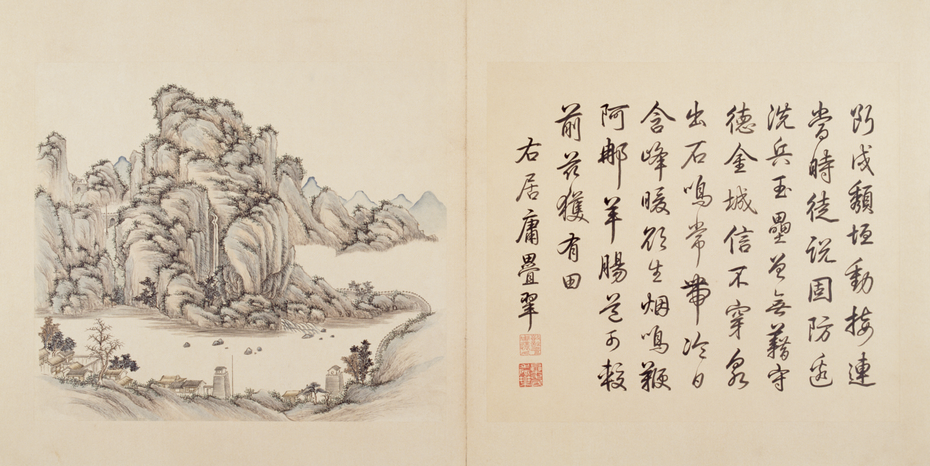 斷戍頽垣動接連
當時徒說固防邊
洗兵玉壘曾無藉守
德金城信不穿泉
出石鳴常帶冷日
含峰暖欲生烟鳴鞭
阿那羊腸道可較
前茲獲有田
右居庸疊翠